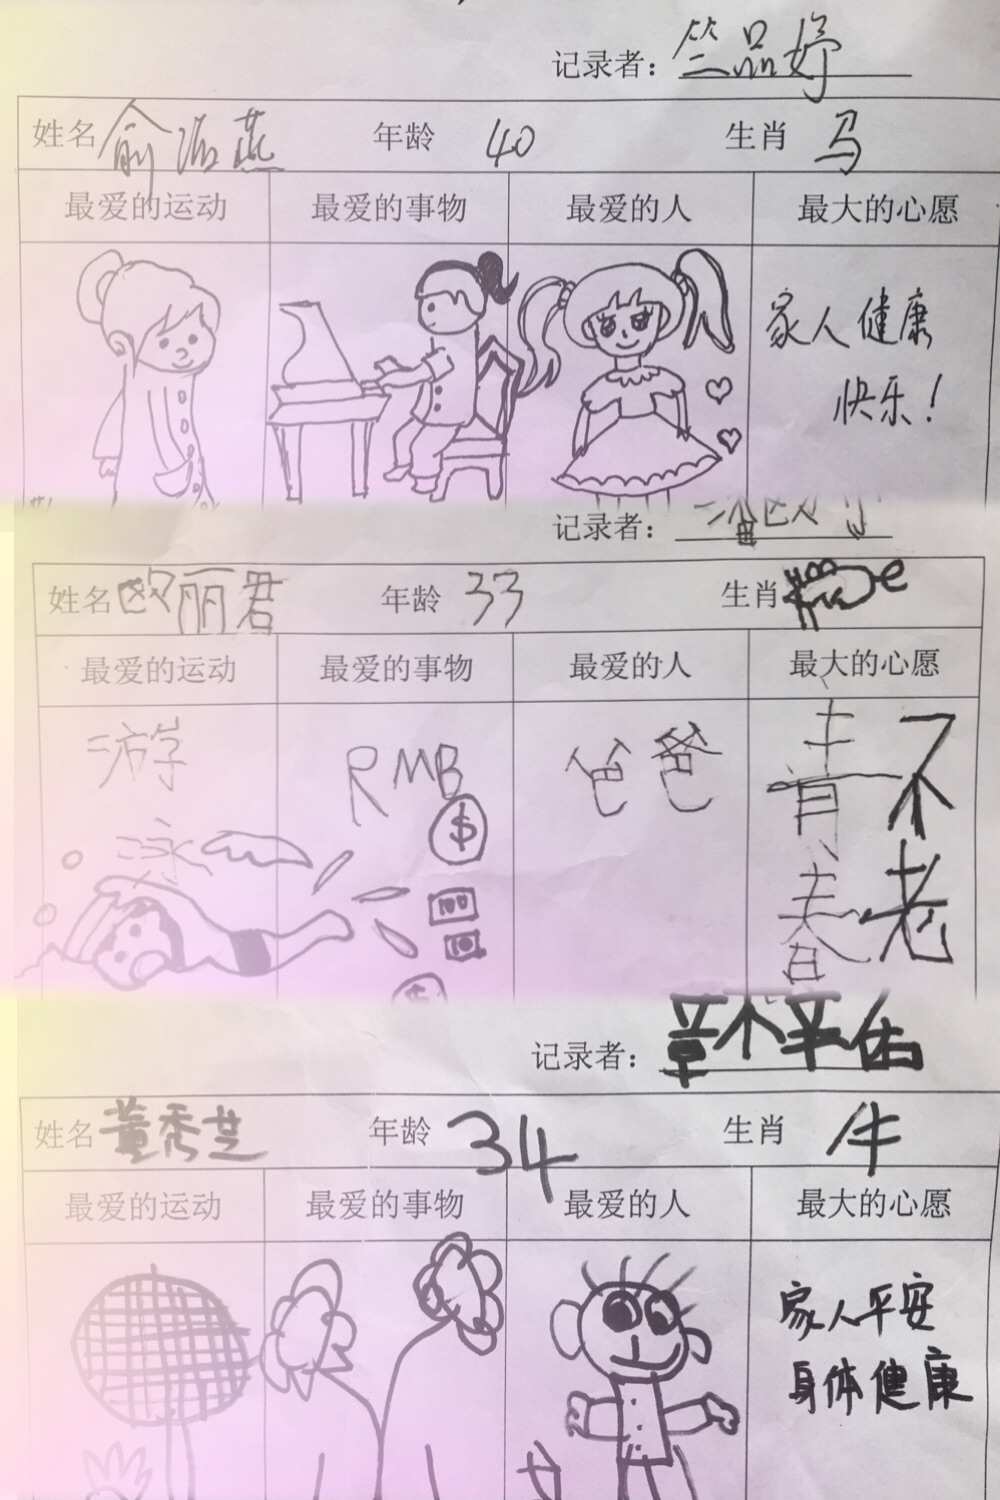 记录者：竺品妤
姓名 俞派燕 年龄 40 生肖 马
最爱的运动 最爱的事物 最爱的人 最大的心愿
家人健康
快乐！
记录者：
姓名 欧丽君 年龄 33 生肖
最爱的运动 最爱的事物 最爱的人 最大的心愿
游
泳
RMB
$
100
$
爸爸
青春
不老
记录者：章不平
姓名 董秀芝 年龄 34 生肖 牛
最爱的运动 最爱的事物 最爱的人 最大的心愿
家人平安
身体健康